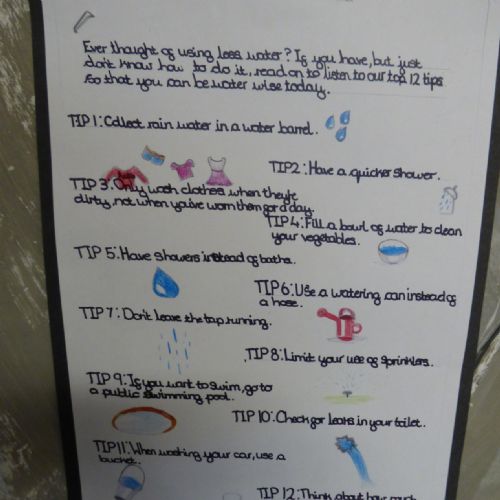 Ever thought of using less water? If you have, but just
don't know how to do it, read on to listen to our top 12 tips
so that you can be water wise today.
TIP 1: Collect rain water in a water barrel.
TIP 2: Have a quicker shower.
TIP 3: Only wash clothes when they're
dirty, not when you've worn them for a day.
TIP 4: Fill a bowl of water to clean
your vegetables.
TIP 5: Have showers instead of baths.
TIP 6: Use a watering can instead of
a hose.
TIP 7: Don't leave the tap running.
TIP 8: Limit your use of sprinklers.
TIP 9: If you want to swim, go to
a public swimming pool.
TIP 10: Check for leaks in your toilet.
TIP 11: When washing your car, use a
bucket.
TIP 12: Think about how much